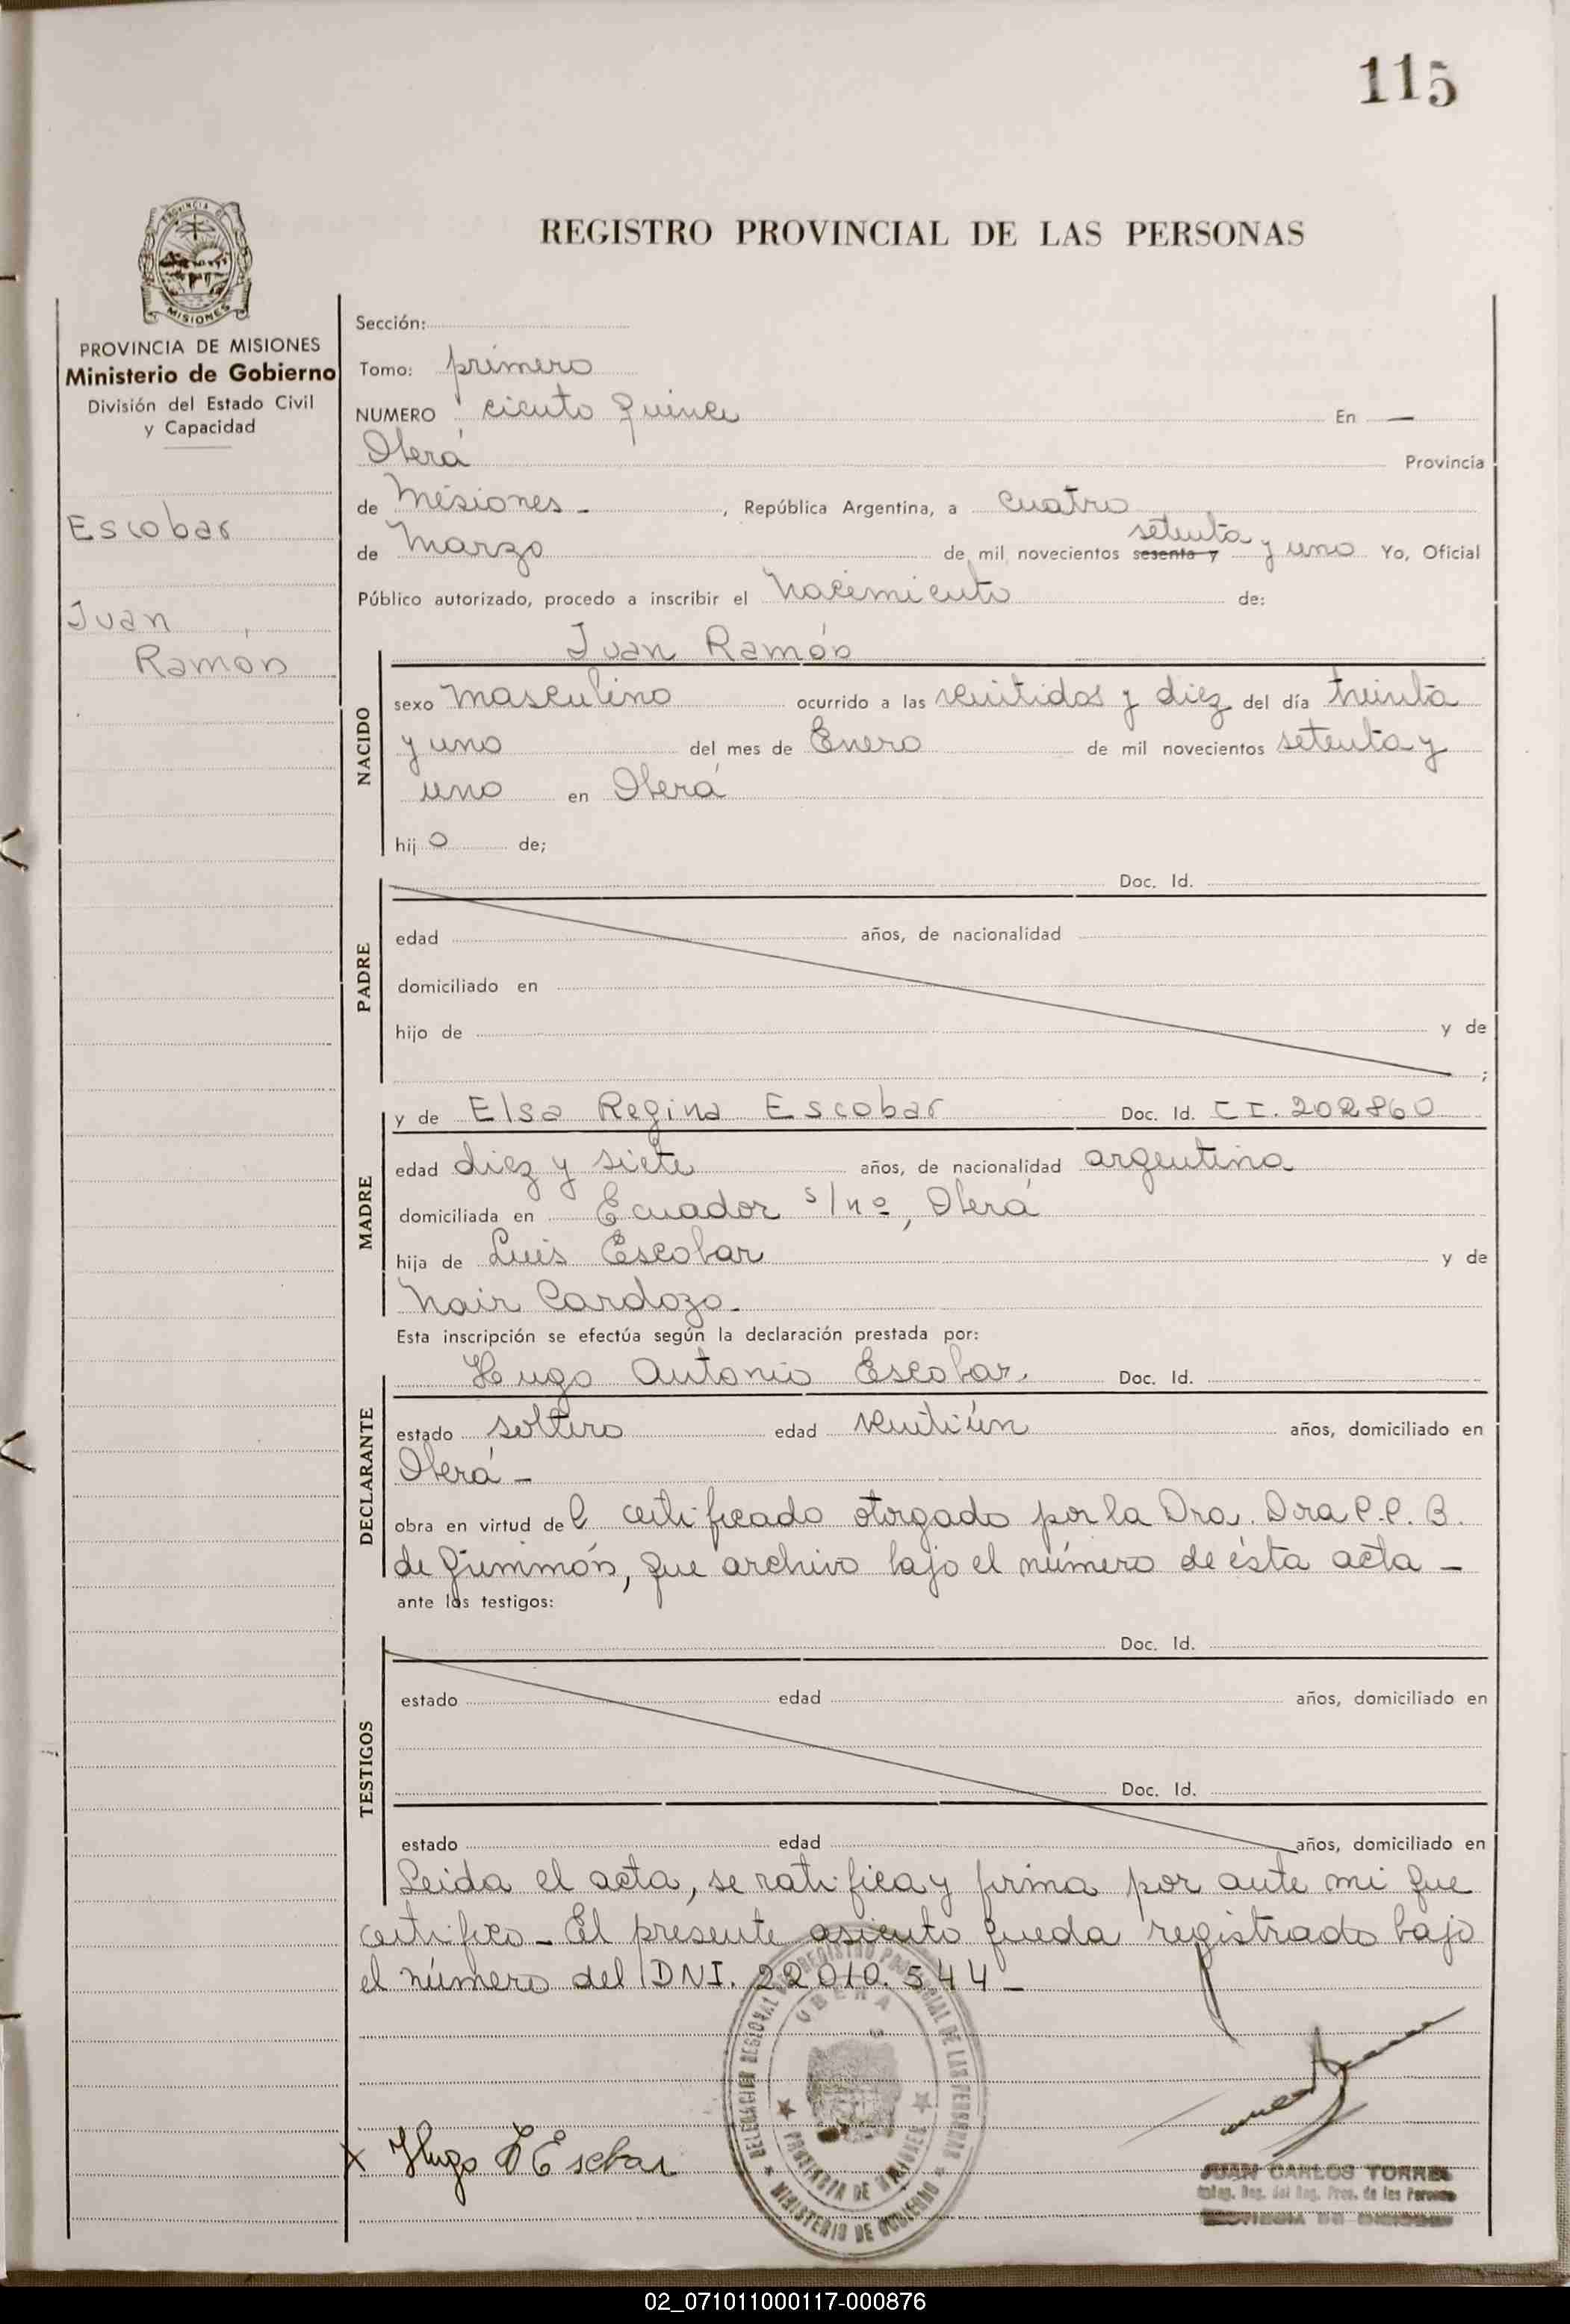 115
REGISTRO PROVINCIAL DE LAS PERSONAS
PROVINCIA DE
MISIONES
PROVINCIA DE MISIONES
Ministerio de Gobierno
División del Estado Civil
y Capacidad
Escobar
Juan
Ramón
Sección:
Tomo: primero
NUMERO ciento quince En —
Oberá Provincia
de Misiones - , República Argentina, a cuatro
setenta
de Marzo de mil novecientos sesenta y y uno Yo, Oficial
Público autorizado, procedo a inscribir el nacimiento de:
Juan Ramón
NACIDO
sexo masculino ocurrido a las veintidos y diez del día treinta
y uno del mes de Enero de mil novecientos setenta y
uno en Oberá
hij o de;
PADRE
Doc. Id.
edad años, de nacionalidad
domiciliado en
hijo de y de
;
MADRE
y de Elsa Regina Escobar Doc. Id. C I. 202860
edad diez y siete años, de nacionalidad argentina
domiciliada en Ecuador s/nº, Oberá
hija de Luis Escobar y de
Nair Cardozo.
Esta inscripción se efectúa según la declaración prestada por:
DECLARANTE
Hugo Antonio Escobar. Doc. Id.
estado soltero edad veintiún años, domiciliado en
Oberá -
obra en virtud de l certificado otorgado por la Dra. Dora P. P. B.
de , que archivo bajo el número de ésta acta -
ante los testigos:
TESTIGOS
Doc. Id.
estado edad años, domiciliado en
Doc. Id.
estado edad años, domiciliado en
Leida el acta, se ratifica y firma por ante mi que
certifico - El presente asiento queda registrado bajo
el número del DNI. 22.010.544 -
DELEGACION REGIONAL DEL REGISTRO PROVINCIAL DE LAS PERSONAS
OBERA
PROVINCIA DE MISIONES
MINISTERIO DE GOBIERNO
x Hugo A Escobar
JUAN CARLOS TORRES
Deleg. Reg. del Reg. Prov. de las Personas
02_071011000117-000876